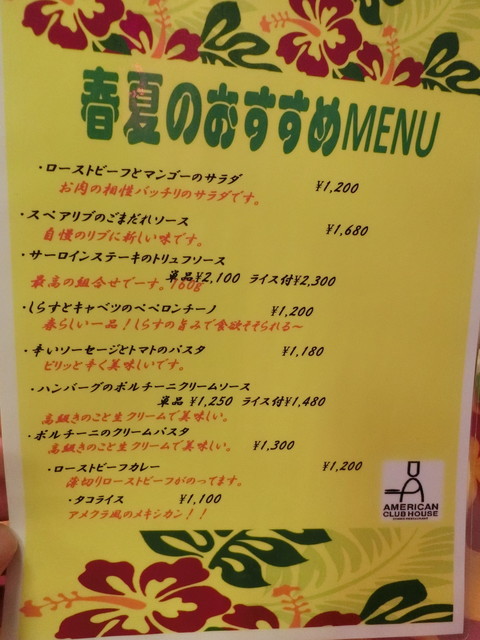 春夏のおすすめMENU
・ローストビーフとマンゴーのサラダ ¥1,200
お肉の相性バッチリのサラダです。
・スペアリブのごまだれソース ¥1,680
自慢のリブに新しい味です。
・サーロインステーキのトリュフソース
単品¥2,100 ライス付¥2,300
最高の組合せでーす。160g
・しらすとキャベツのペペロンチーノ ¥1,200
春らしい一品！しらすの旨みで食欲そそられる〜
・辛いソーセージとトマトのパスタ ¥1,180
ピリッと辛く美味しいです。
・ハンバーグのポルチーニクリームソース
単品 ¥1,250 ライス付¥1,480
高級きのこと生クリームで美味しい。
・ポルチーニのクリームパスタ ¥1,300
高級きのこと生クリームで美味しい。
・ローストビーフカレー ¥1,200
薄切りローストビーフがのってます。
・タコライス ¥1,100
アメクラ風のメキシカン！！
AMERICAN
CLUB HOUSE